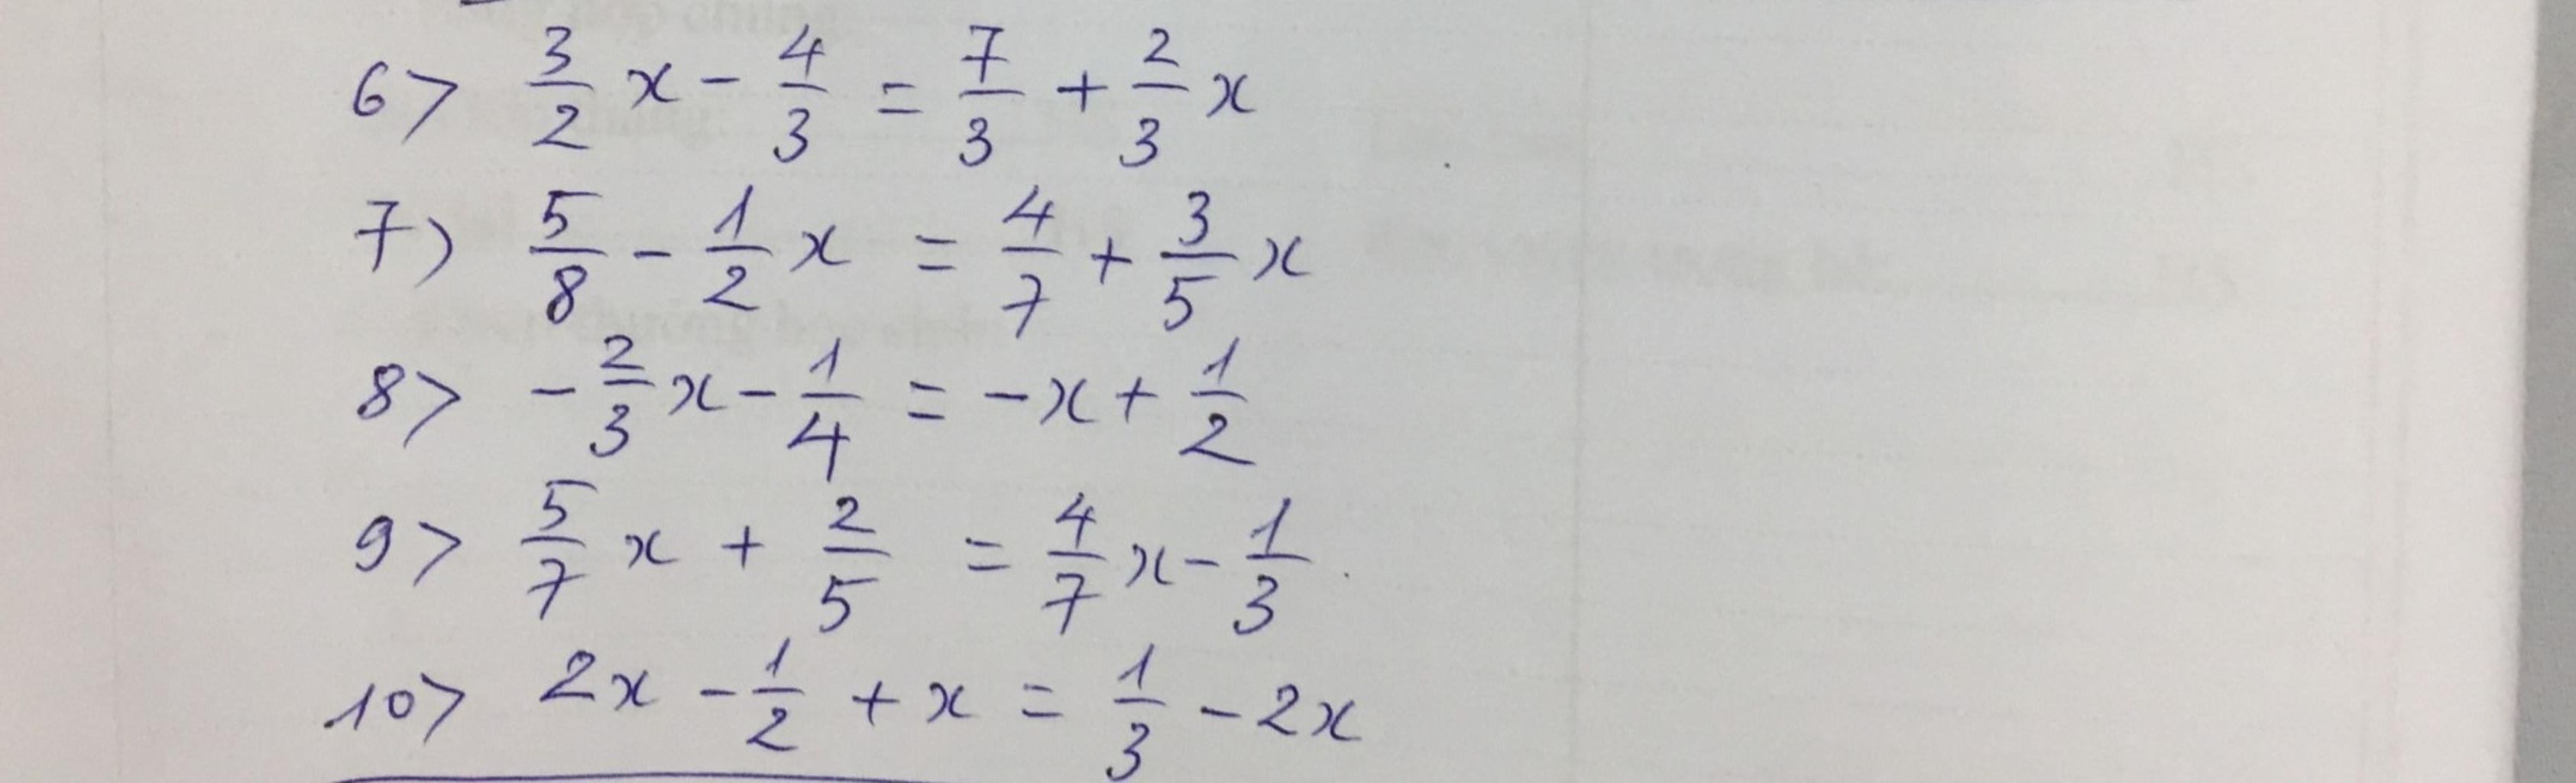 6> 3/2 x - 4/3 = 7/3 + 2/3 x
7) 5/8 - 1/2 x = 4/7 + 3/5 x
8> - 2/3 x - 1/4 = - x + 1/2
9> 5/7 x + 2/5 = 4/7 x - 1/3
10> 2x - 1/2 + x = 1/3 - 2x